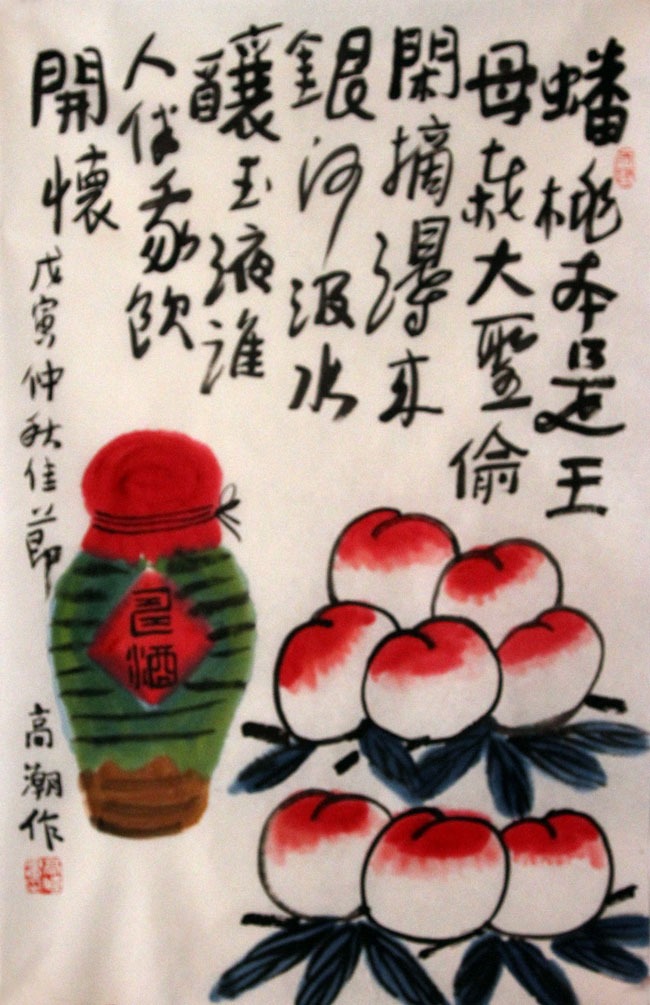 蟠桃本是王
母栽大聖偷
閑摘得来
銀河汲水
釀玉液誰
人伴我飲
開懷
戊寅仲秋佳節
高潮作
酒